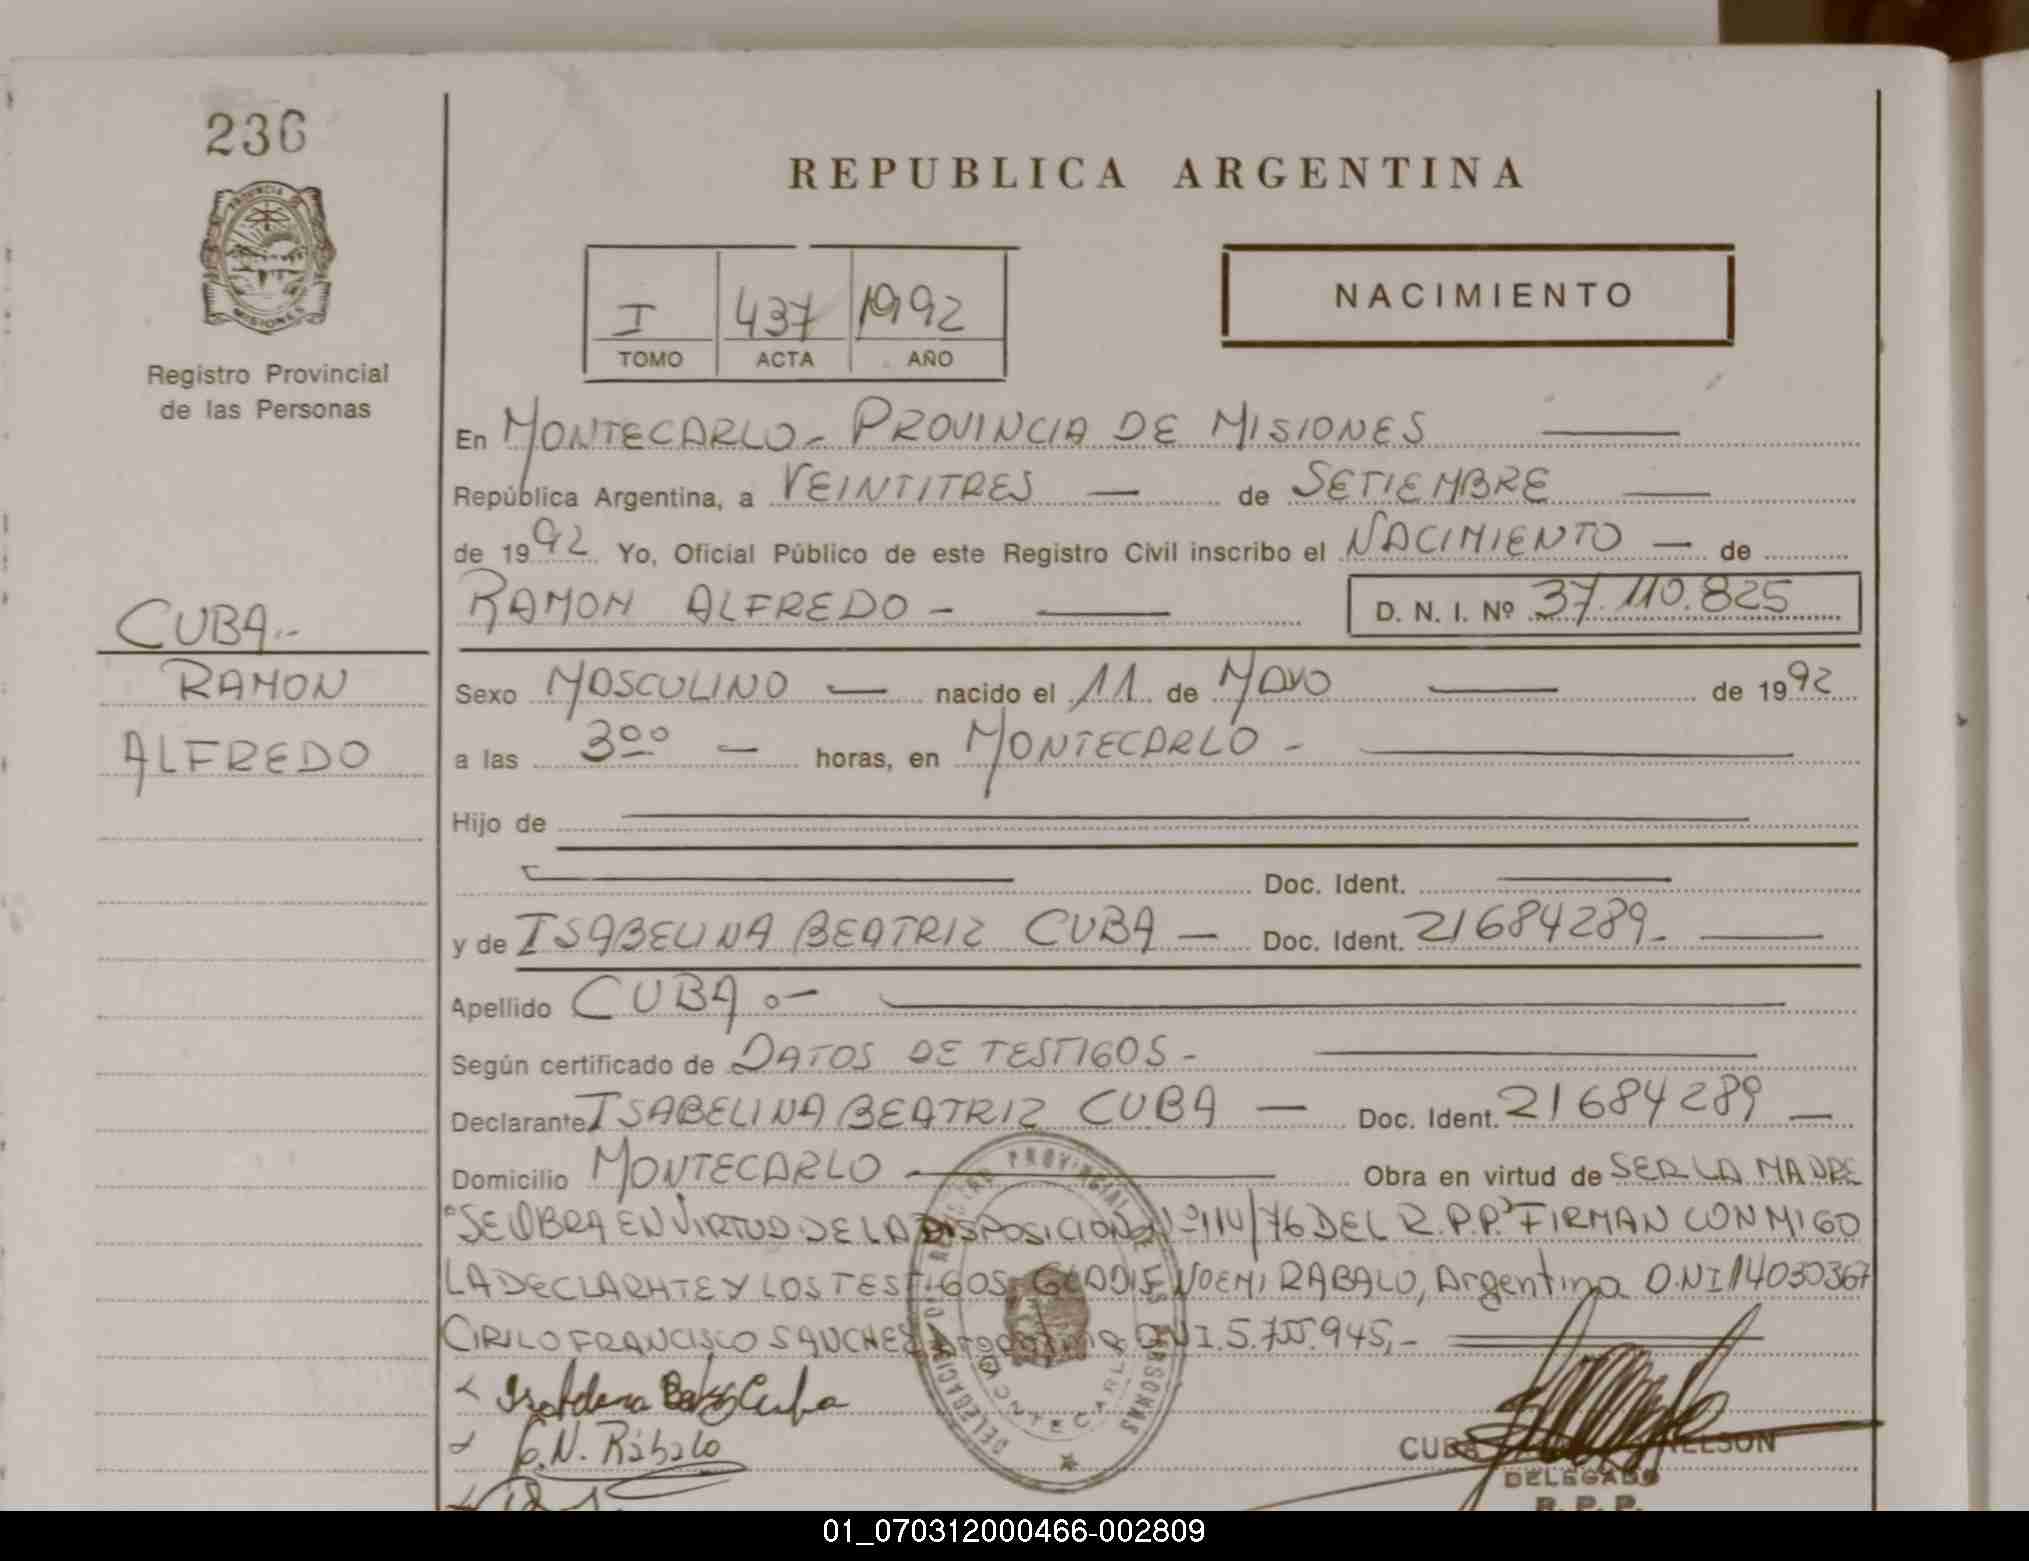 236
PROVINCIA
MISIONES
Registro Provincial
de las Personas
REPUBLICA ARGENTINA
I 437 1992
TOMO ACTA AÑO
NACIMIENTO
En MONTECARLO - PROVINCIA DE MISIONES
República Argentina, a VEINTITRES — de SETIEMBRE
de 1992 Yo, Oficial Público de este Registro Civil inscribo el NACIMIENTO — de
RAMON ALFREDO - D. N. I. Nº 37.110.825
CUBA.-
RAMON
ALFREDO
Sexo MASCULINO — nacido el 11 de MAYO — de 1992
a las 3 00 — horas, en MONTECARLO -
Hijo de
Doc. Ident.
y de ISABELINA BEATRIZ CUBA — Doc. Ident. 21684289-
Apellido CUBA.-
Según certificado de DATOS DE TESTIGOS-
Declarante ISABELINA BEATRIZ CUBA — Doc. Ident. 21684289 —
Domicilio MONTECARLO — Obra en virtud de SER LA MADRE
"SE OBRA EN VIRTUD DE LA DISPOSICION Nº 114/76 DEL R.P.P." FIRMAN CONMIGO
LA DECLARNTE Y LOS TESTIGOS: GLADIS NOEMI RABALO, Argentina D.N.I 14030367
CIRILO FRANCISCO SANCHES DNI. 5.755.945,-
G.N. Rábalo
CUBA NELSON
DELEGADO
R. P. P.
01_070312000466-002809